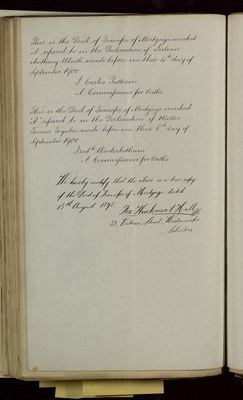 This is the Deed of Transfer of Mortgage marked
"A" referred to in the Declaration of
Anthony made before me this 4th day of
September 1900
A Commissioner for Oaths
This is the Deed of Transfer of Mortgage marked
"A" referred to in the Declaration of Walter
made before me this 5th day of
September 1900
A Commissioner for Oaths
We hereby certify that the above is a true copy
of the Deed of Transfer of Mortgage dated
13th August 1898
Victoria Street, Westminster
Solicitors